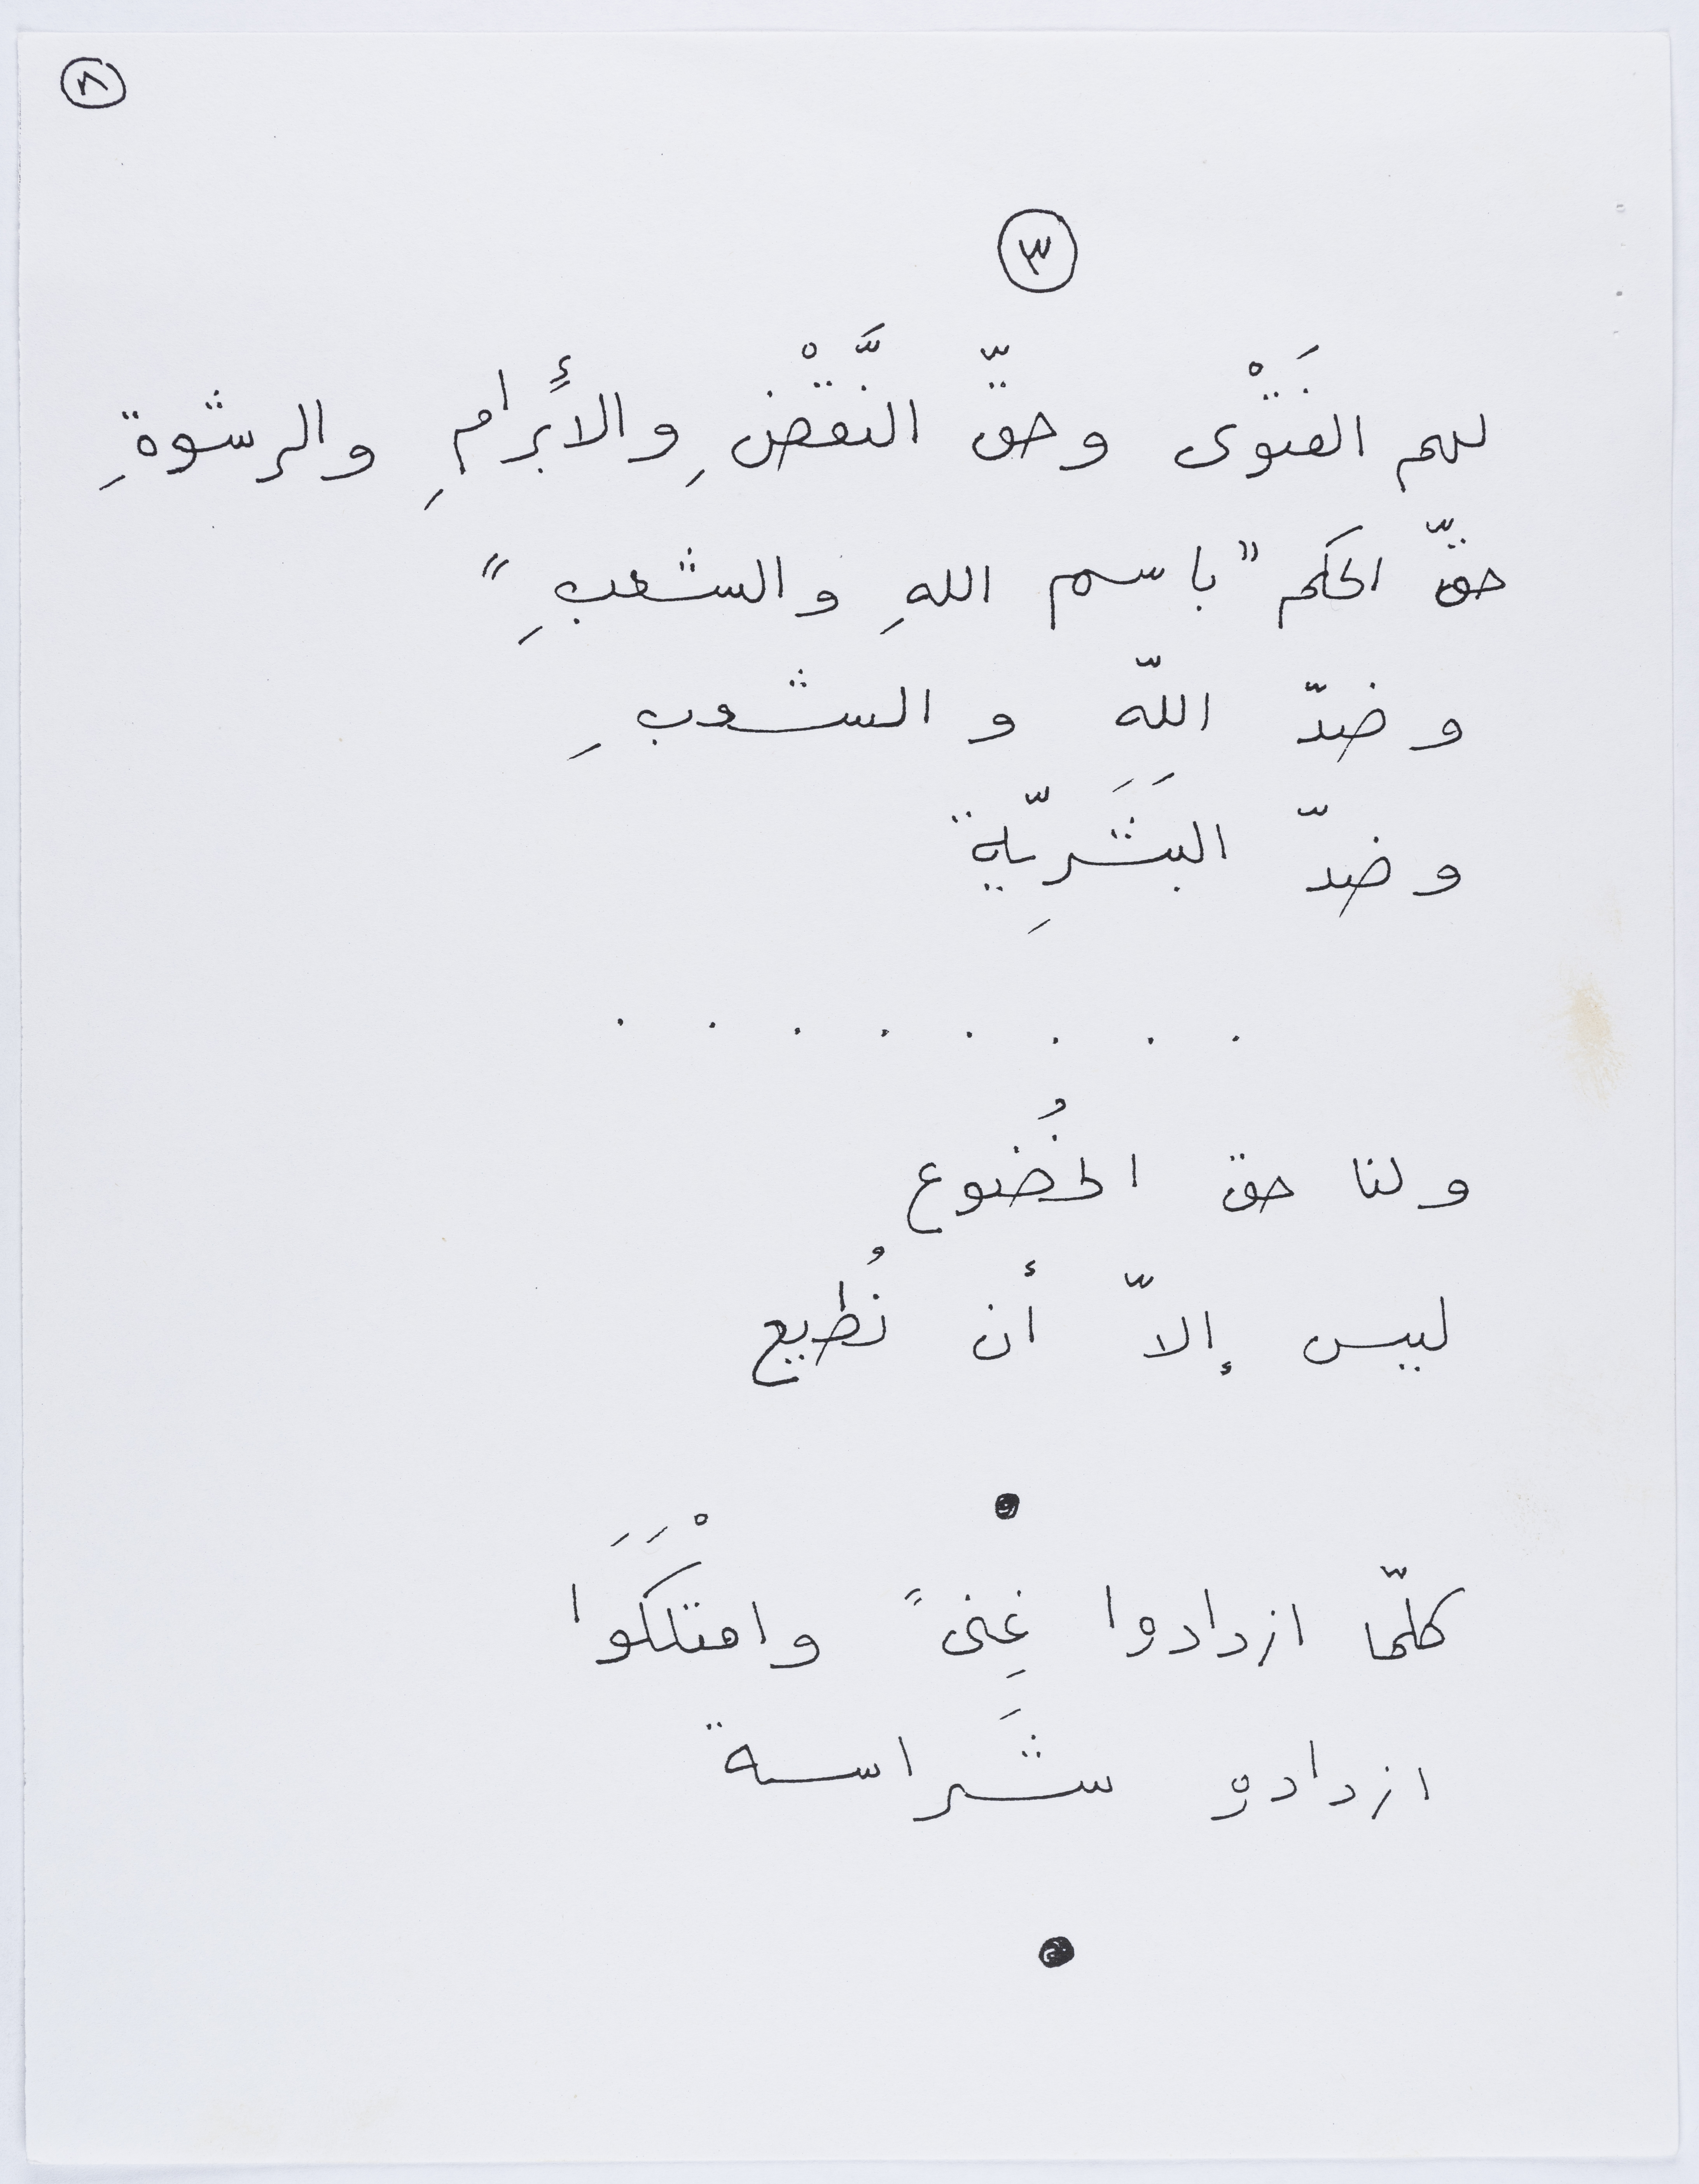 ٨
٣
لهم الفَتْوى وحقّ النَّقْضِ والأَبرامِ والرشوةِ
حقّ الحكم "باسم اللهِ والشعبِ"
وضدّ اللّه والشعبِ
وضدّ البَشَرِيّة
. . . . . . . .
ولنا حق الخُضوع
ليس إلاّ أن نُطيع
●
كلّما ازدادوا غِنىً وامتلْكَوَا
ازدادو شَراسة
●